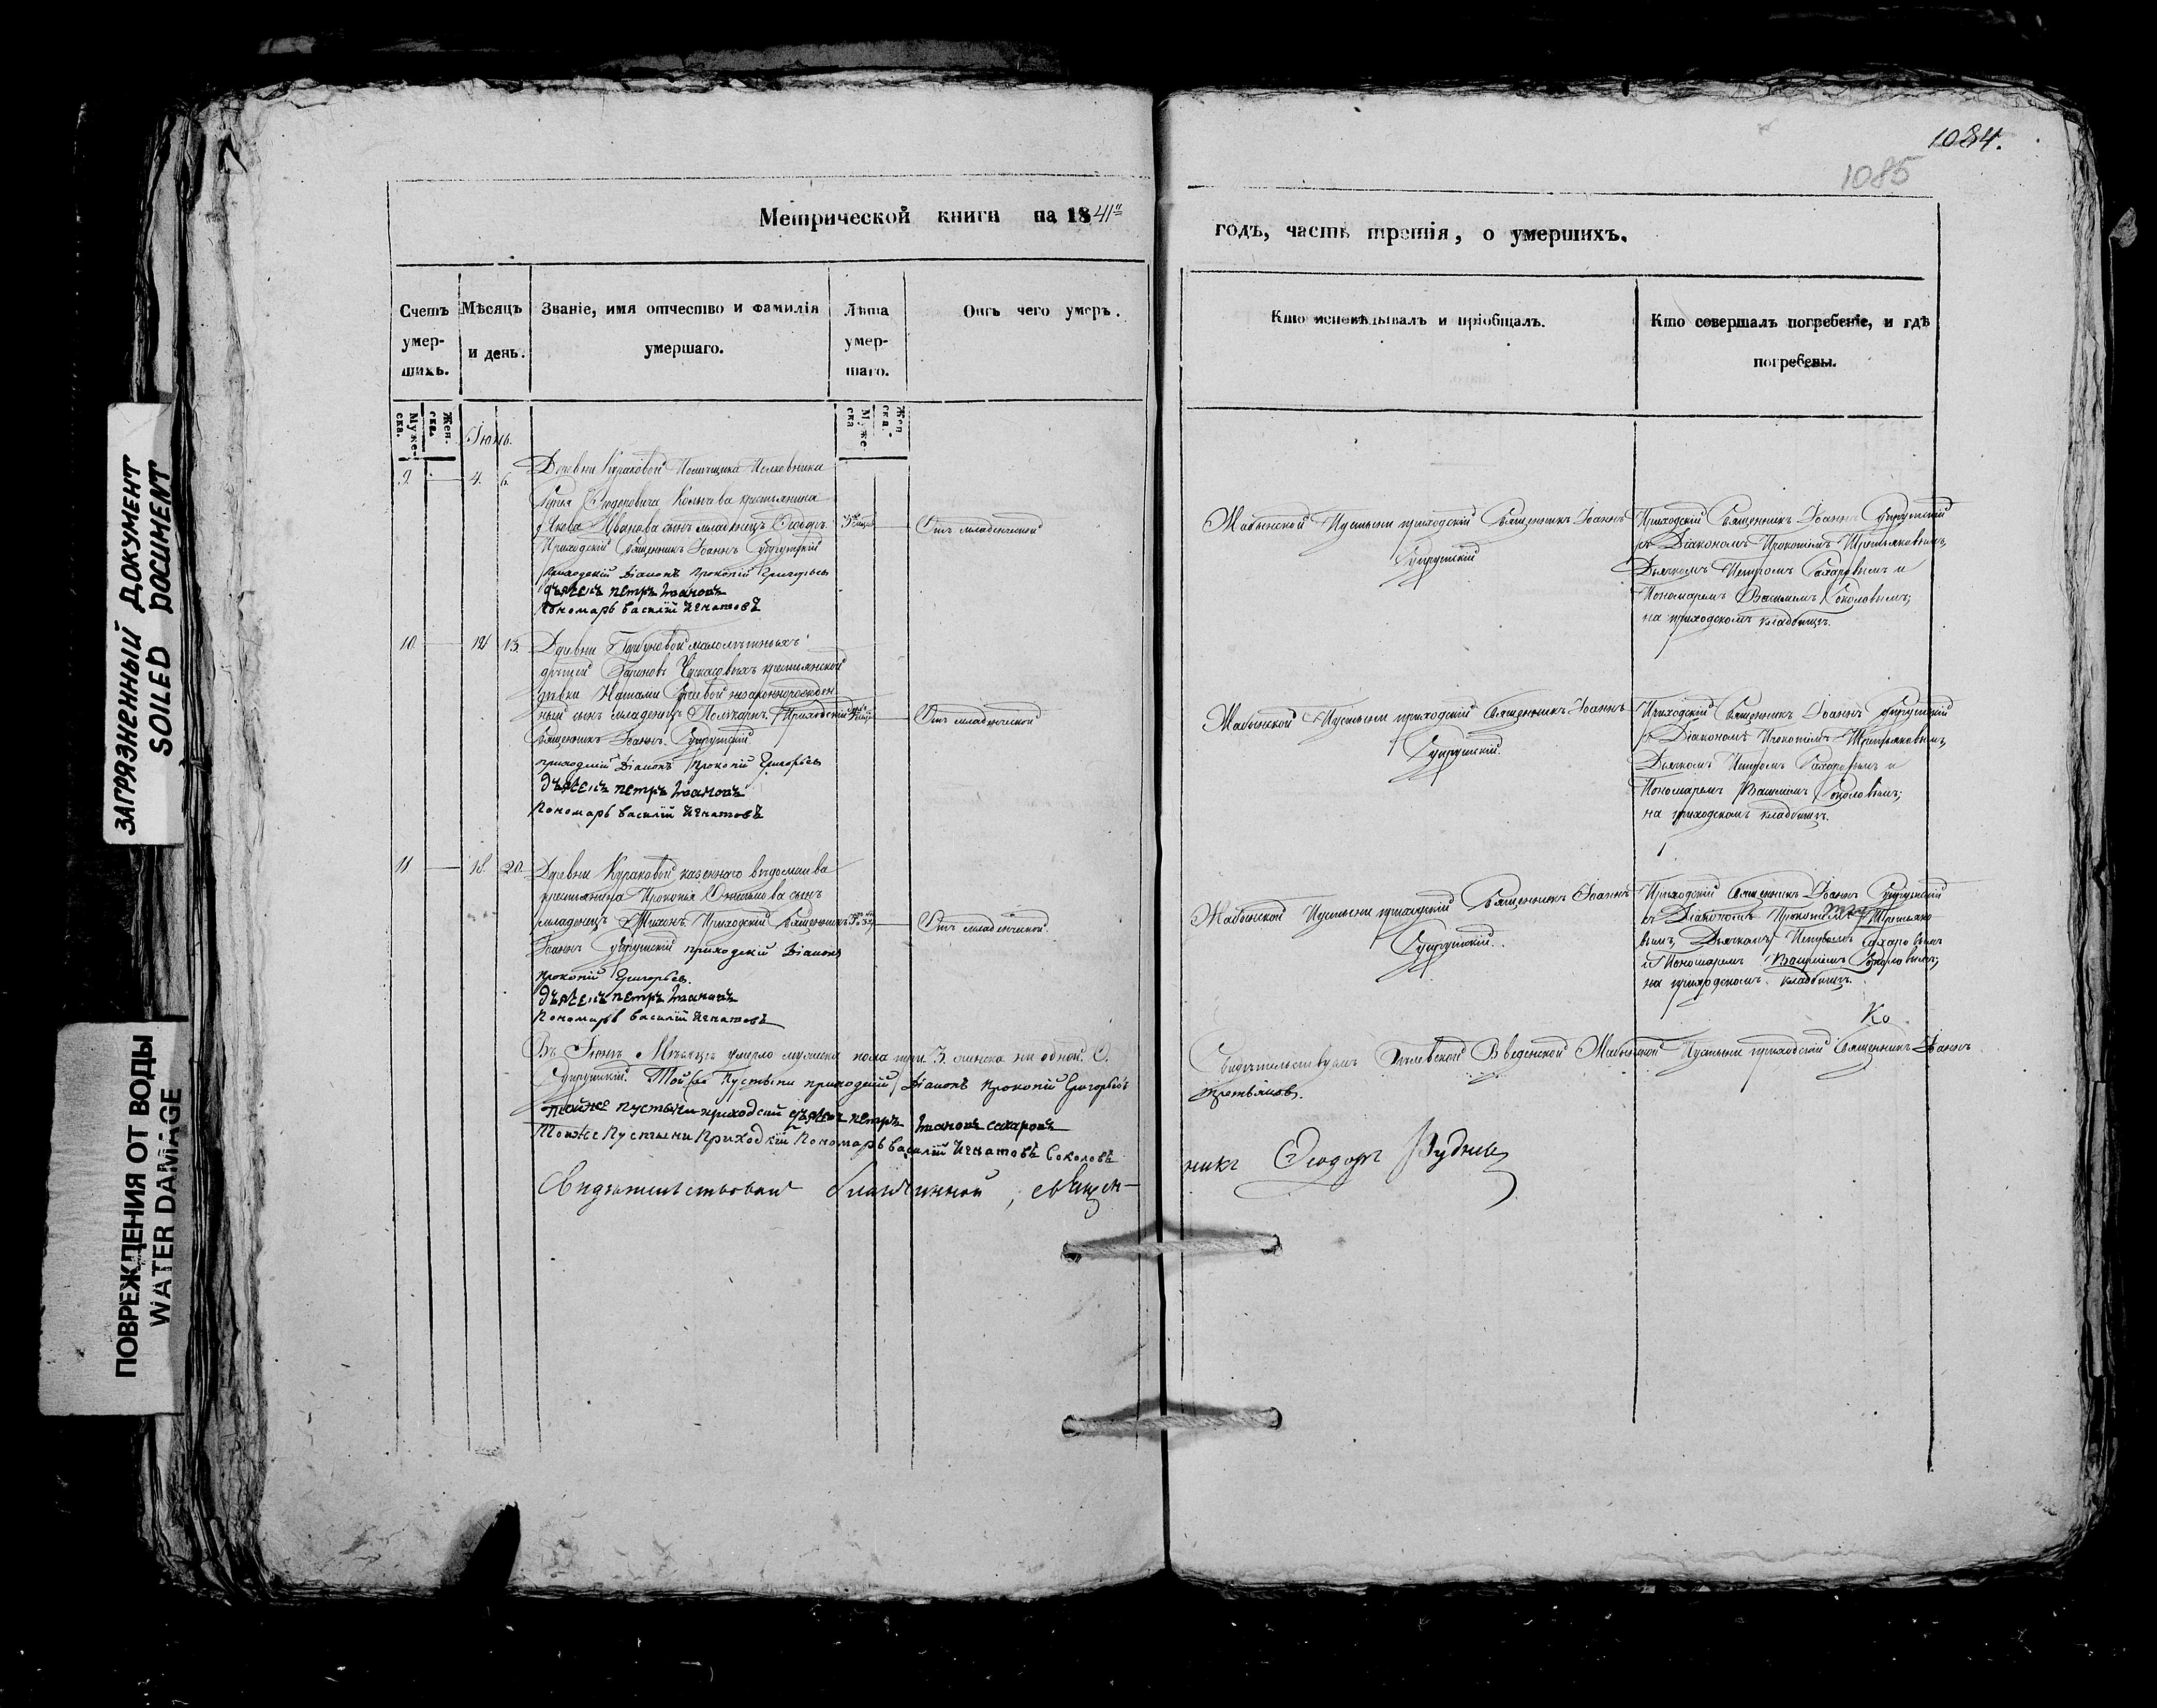 1084.
1085
Метрической книги на 1841
годъ, часть третія, о умершихъ.
Счетъ умер- шихъ.
Мѣсяцъ и день.
Званіе, имя отчество и фамилія умершаго.
Лѣта умер- шаго.
Отъ чего умеръ.
Кто исповѣдывалъ и пріобщалъ.
Кто совершалъ погребеніе, и гдѣ погребены.
Муже- ска.
Жен- ска.
Муже- ска
Жен- ска.
Іюнь.
9. 4. 6.
Деревни Кураковой Помѣщика Полковника
Ѳедоровича Колычева крестьянина
Якова Иванова сынъ младенецъ Ѳеодоръ
Приходскій Священникъ Іоаннъ Супрутскій
приходскій Діаконъ Прокопій Григорьевъ
дьячекъ петръ Ивановъ
Пономарь василій Игнатовъ
Отъ младенческой
Жабынской Пустыни приходскій Священникъ Іоаннъ
Супрутскій
Приходскій Священникъ Іоаннъ Супрутскій
съ Діакономъ Прокопіемъ Третьяковымъ,
Дьячкомъ Петромъ Сахаровымъ и
Пономаремъ Василіемъ Соколовымъ;
на приходскомъ кладбищѣ.
10. 12 13.
Деревни малолѣтныхъ
дѣтей крестьянской
дѣвки незаконнорожден
ный сынъ младенецъ Поликарпъ. Приходскій
Священникъ Іоаннъ Супрутскій
приходскій Діаконъ Прокопій Григорьевъ
дьячекъ петръ Ивановъ
Пономарь василій Игнатовъ
Отъ младенческой
Жабынской Пустыни приходскій Священникъ Іоаннъ
Супрутскій.
Приходскій Священникъ Іоаннъ Супрутскій
съ Діакономъ Прокопіемъ Третьяковымъ,
Дьячкомъ Петромъ Сахаровымъ и
Пономаремъ Василіемъ Соколовымъ;
на приходскомъ кладбищѣ.
11 18. 20.
Деревни Кураковой казеннаго вѣдомства
крестьянина Прокопія сынъ
младенецъ Тихонъ. Приходскій Священникъ
Іоаннъ Супрутскій приходскій Діаконъ
Прокопій Григорьевъ.
дьячекъ петръ Ивановъ
Пономарь василій Игнатовъ
Отъ младенческой.
Жабынской Пустыни приходскій Священникъ Іоаннъ
Супрутскій.
Приходскій Священникъ Іоаннъ Супрутскій
съ Діакономъ Прокопіемъ Третьяко
вымъ, Дьячкомъ Петромъ Сахаровымъ
и Пономаремъ Василіемъ Соколовымъ;
на приходскомъ кладбищѣ.
Ко
Въ Іюнѣ Мѣсяцѣ умерло мужеска пола три. 3. женска ни одной. 0.
Свидѣтельствуемъ Бѣлевской Введенской Жабынской Пустыни приходскій Священникъ Іоаннъ
Супрутскій. Той же Пустыни приходскій Діаконъ Прокопій Григорьевъ
третьяковъ.
тойже пустыни приходскій дьячекъ петръ Ивановъ сахаровъ
Тойже Пустыни Приходскій Пономарь василій Игнатовъ Соколовъ
Свидѣтельствовалъ благочинной, священ-
никъ Ѳеодоръ Рудневъ
ЗАГРЯЗНЕННЫЙ ДОКУМЕНТ
SOILED DOCUMENT
ПОВРЕЖДЕНИЯ ОТ ВОДЫ
WATER DAMAGE